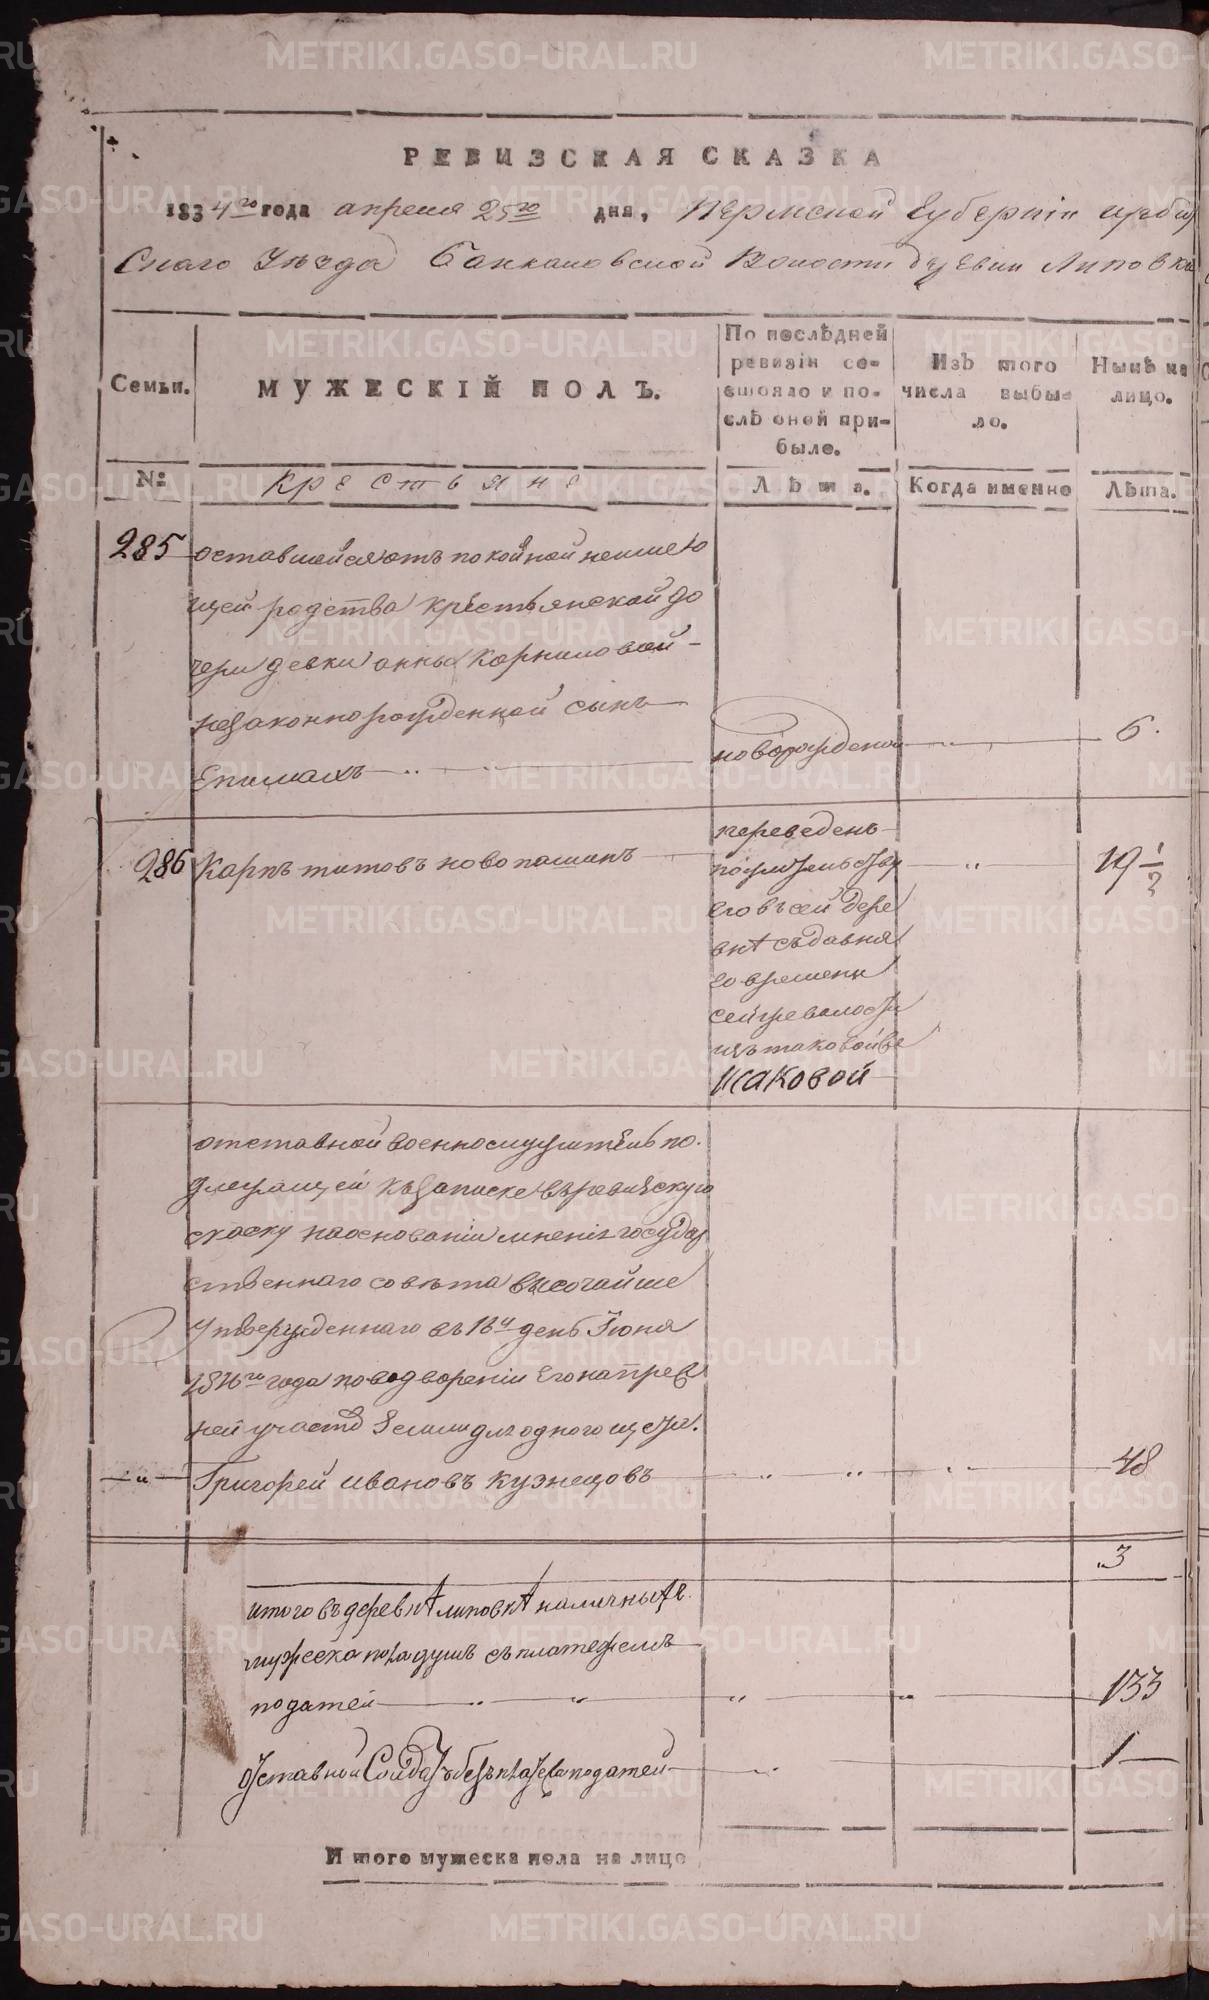 РЕВИЗСКАЯ СКАЗКА
1834го года апреля 25го дня, Пермской Губернiи ирбит
Скаго Уѣзда Волости деревни Липовки
Семьи.
МУЖЕСКIЙ ПОЛЪ.
По послѣдней
ревизiи со-
стояло и по-
слѣ оной при-
было.
Изъ того
числа выбы-
ло.
Нынѣ на
лицо.
№:
Крестьяне
Лѣта.
Когда именно
Лѣта.
285
оставшейся отъ покойной неимею
щей родства крестьянской до
чери девки анны Корниловой -
незаконнорожденной сынъ
новорожденой
6.
Епимахъ
286
Карпъ титовъ новопашинъ
переведенъ
его въ сей дере
внѣ съ давня
го времени
сей же волости
изъ таковой же
Исаковой
19 1/2
отставной военнослужитель по
длежащей къ записке въ ревизскую
скаску на основанiи мненiя государ
ственнаго совѣта высочайше
Утвержденнаго въ день Iюня
года по водворенiи Его на преж
ней участъ Земли для одного
Григорей ивановъ кузнецовъ
48
3
итого въ деревнѣ липовкѣ наличныхъ
мужеска пола душъ съ платежемъ
податей
133
отставной Солдатъ безъ платежа податей
1
Итого мужеска пола на лицо
METRIKI.GASO-URAL.RU